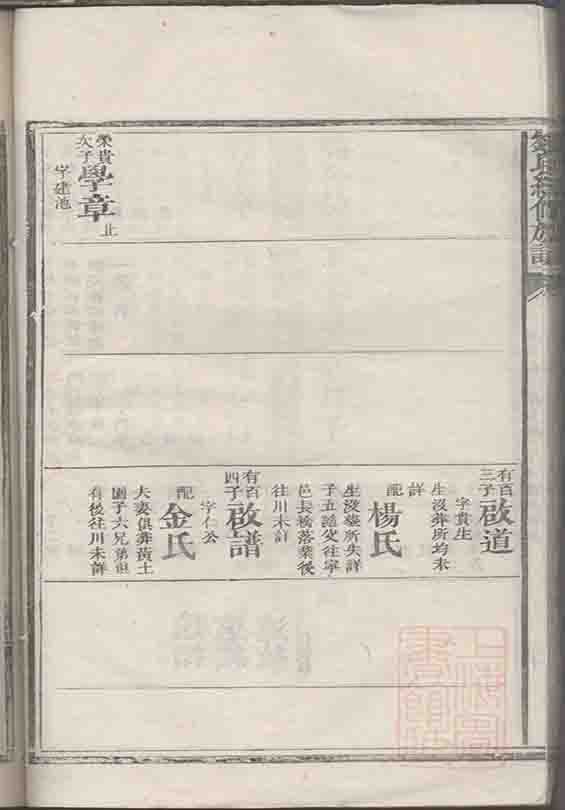 氏續修族譜
榮貴次子學章止
字建池
有百三子啟道
字貴生
生沒葬所均未
詳
配楊氏
生沒葬所失詳
子五隨父往寧
邑長橋落業後
往川未詳
有百四子啟譜
字仁公
配金氏
夫妻俱葬黃土
園子六兄弟俱
有後往川未詳